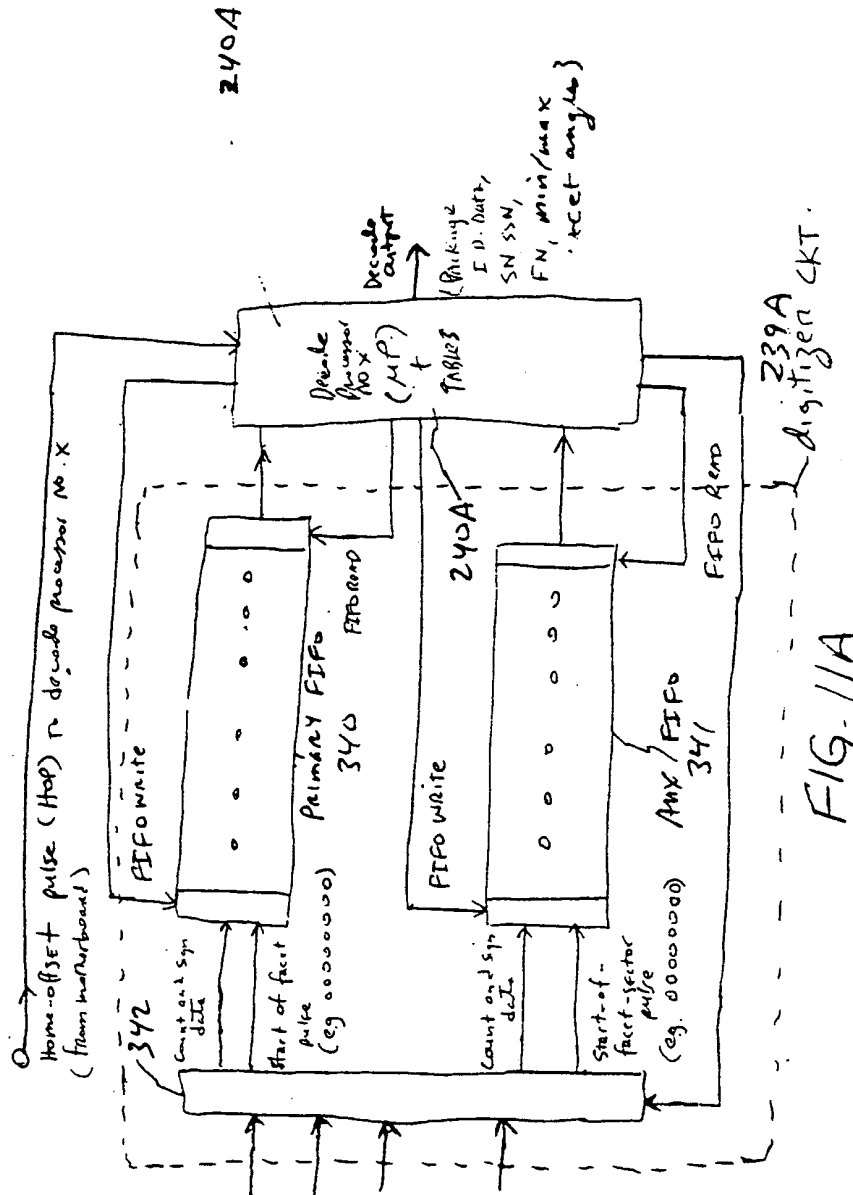 Home-offset pulse (HOP) to decode processor No. X
(from motherboard)
342
FIFO WRITE
Count and Sgn
data
Start of facet
pulse
(eg 00000000)
PRIMARY FIFO
340
FIFO READ
FIFO WRITE
Count and Sgn
data
Start-of-
facet-sector
pulse
(eg. 00000000)
Aux / FIFO
341
FIFO READ
240A
Decode
Processor
No X
(μP.)
+
TABLES
240A
Decode
output
I.D. Data,
SN SSN,
FN, min/max
facet angles}
239A
digitizer CKT.
FIG. 11A